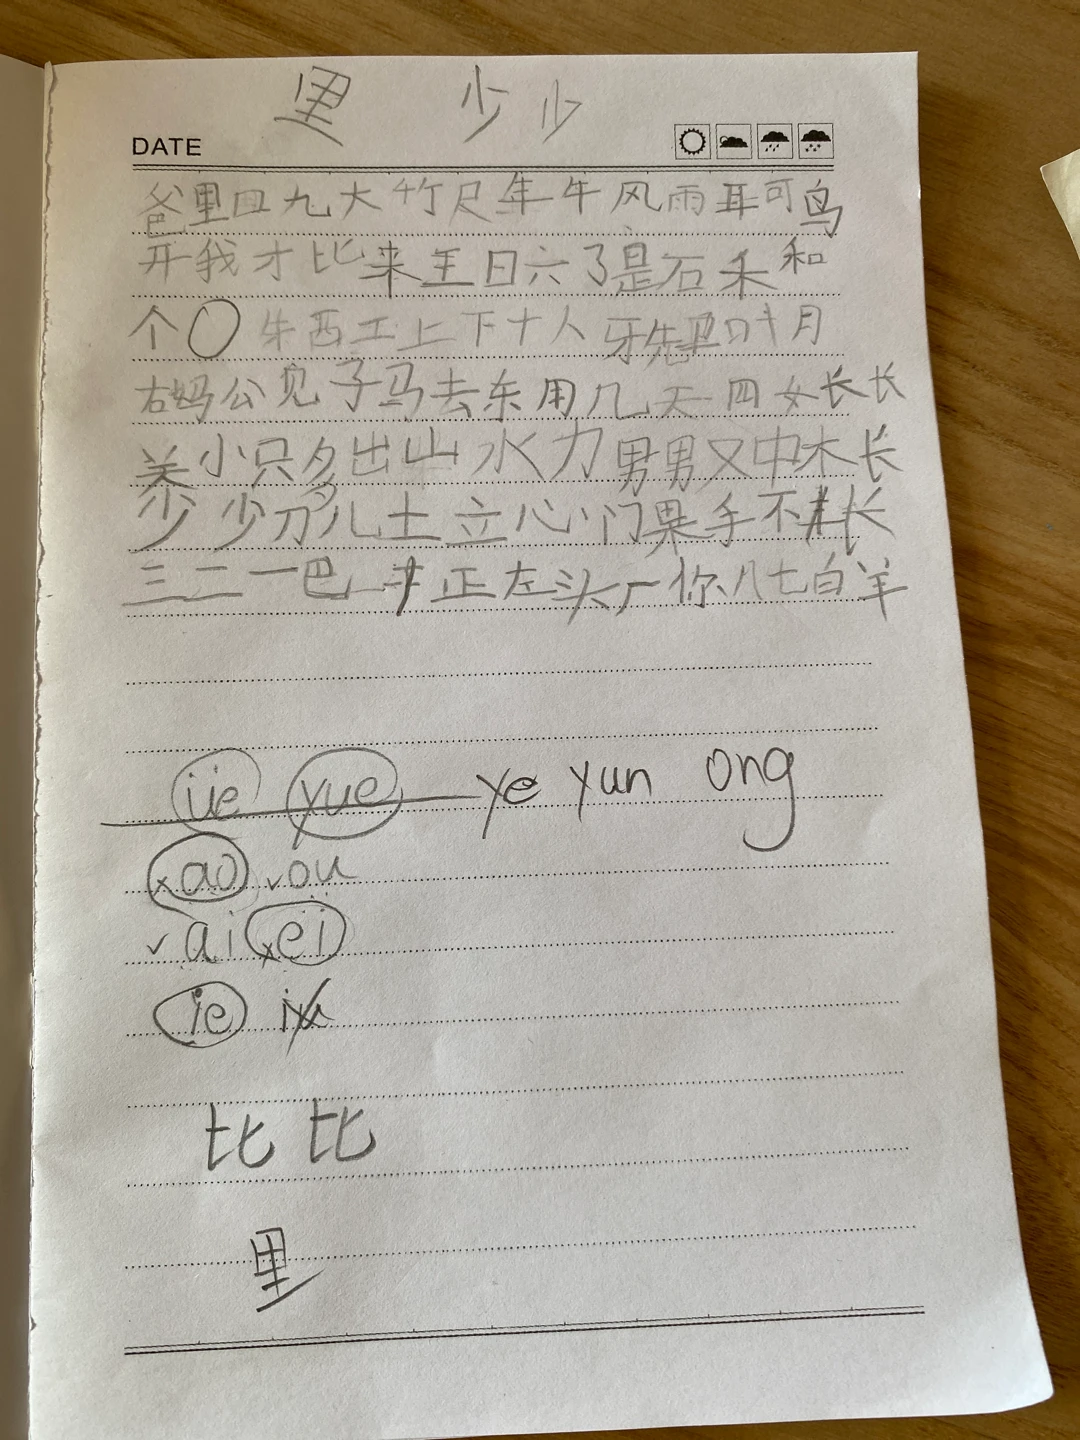 里 少 少
DATE
爸里四九大竹尺年牛风雨耳可鸟
开我才比来王日六了是石禾和
个〇牛西工上下十人牙先里日十月
右妈公见子马去东用几天四女长长
养小只多出山水力男男又中木长
少少刀儿土立心门果手不长
三二一巴正左头厂你八七白羊
üe yue ye yun ong
ao ou
ai ei
ie iu
比比
里